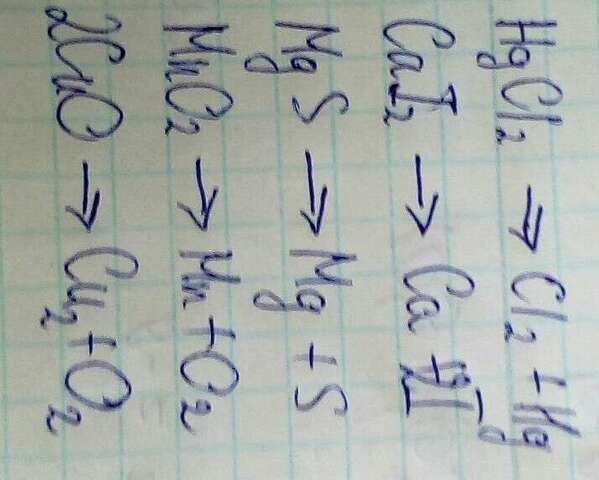 HgCl₂ → Cl₂ + Hg
CaI₂ → Ca + 2I
MgS → Mg + S
MnO₂ → Mn + O₂
2CuO → Cu₂ + O₂